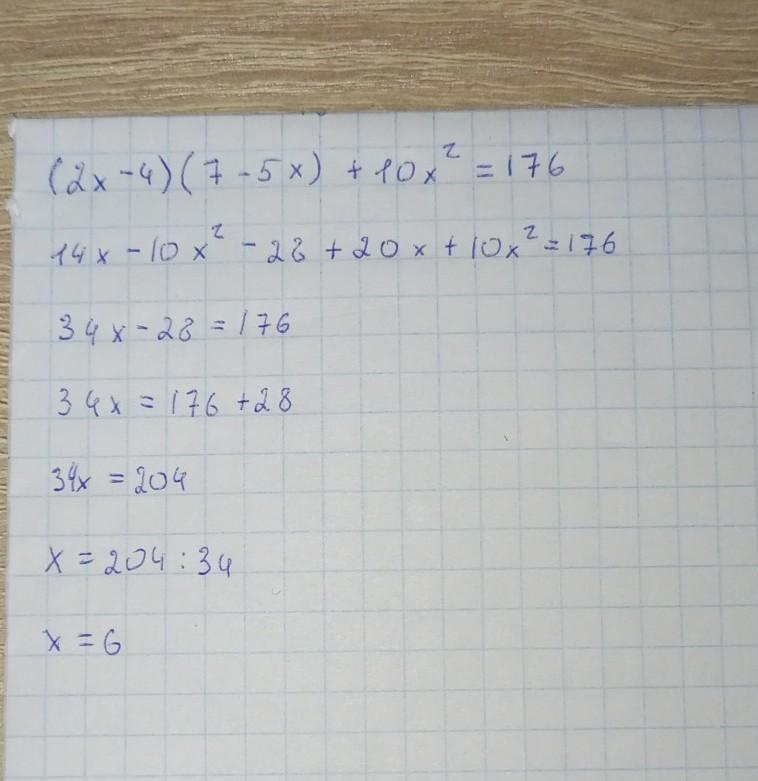 (2x-4)(7-5x) + 10x² = 176
14x - 10x² - 28 + 20x + 10x² = 176
34x - 28 = 176
34x = 176 + 28
34x = 204
x = 204 : 34
x = 6